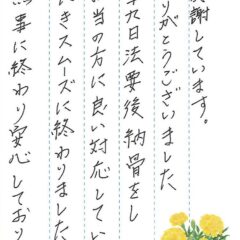 感謝しています。
りがとうございました
十九日法要後納骨をし
当の方に良い対応してい
だきスムーズに終わりました
無事に終わり安心しており